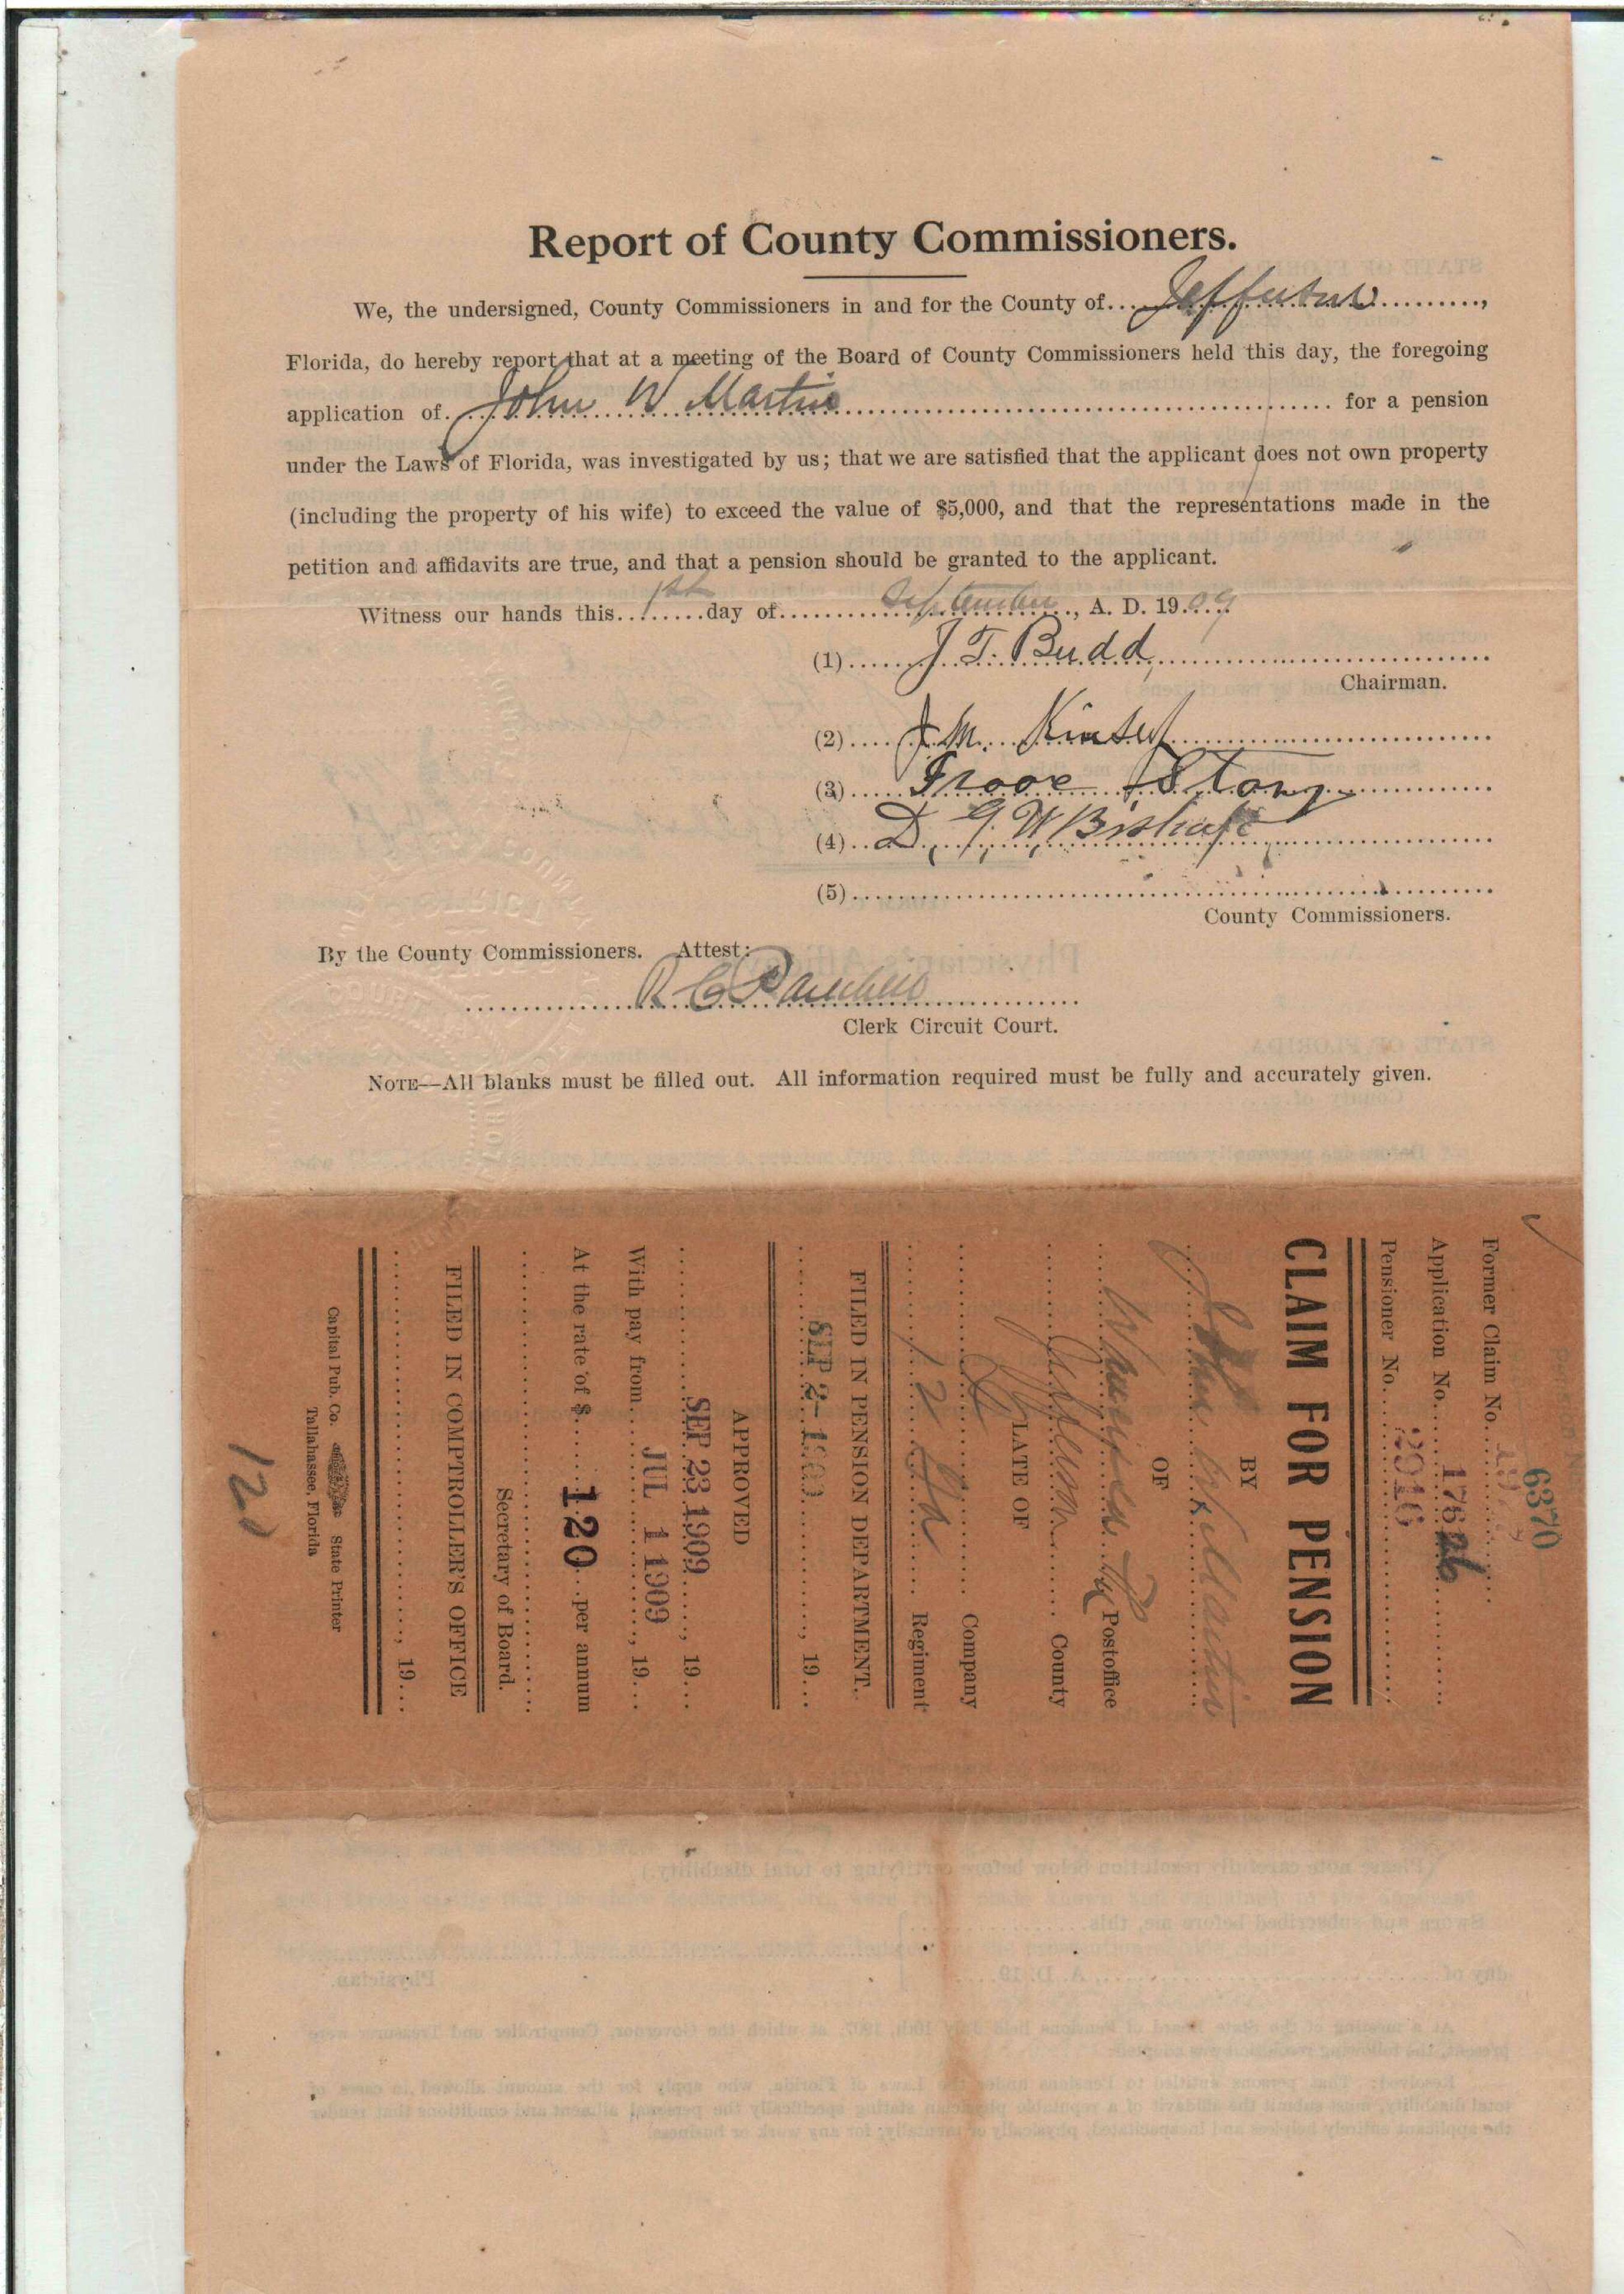 Report of County Commissioners.
We, the undersigned, County Commissioners in and for the County of Jefferson,
Florida, do hereby report that at a meeting of the Board of County Commissioners held this day, the foregoing
application of John W Martin for a pension
under the Laws of Florida, was investigated by us; that we are satisfied that the applicant does not own property
(including the property of his wife) to exceed the value of $5,000, and that the representations made in the
petition and affidavits are true, and that a pension should be granted to the applicant.
Witness our hands this 1st day of September, A. D. 1909
(1) J. T. Budd,
Chairman.
(2) J. M. Kinsey
(3) Stong
(4) D, G. W Bishop
(5)
County Commissioners.
By the County Commissioners. Attest:
R C
Clerk Circuit Court.
NOTE—All blanks must be filled out. All information required must be fully and accurately given.
6370
Former Claim No.
Application No. 17626
2916
Pensioner No.
CLAIM FOR PENSION
BY
John W. Martin
OF
Postoffice
Jefferson County
LATE OF
Company
12 Ga Regiment
FILED IN PENSION DEPARTMENT.
SEP 2- 1909, 19
APPROVED
SEP 23 1909, 19
With pay from JUL 1 1909, 19
At the rate of $ 120 per annum
Secretary of Board.
FILED IN COMPTROLLER'S OFFICE
, 19
Capital Pub. Co. State Printer
Tallahassee, Florida
120